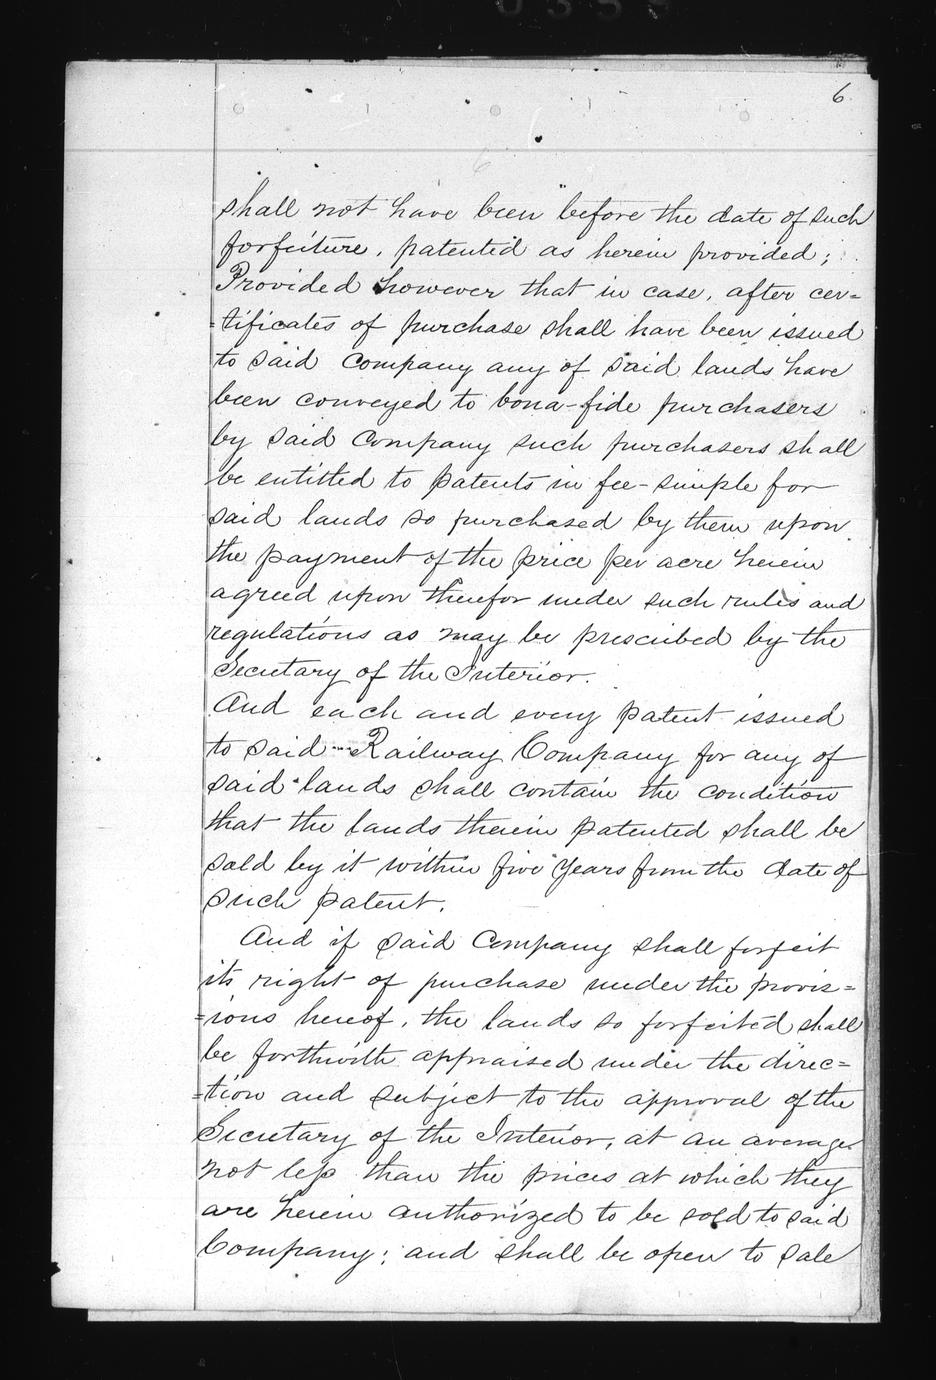 6
6
shall not have been before the date of such
forfeiture, patented as herein provided;
Provided however that in case, after cer=
=tificates of purchase shall have been issued
to said Company any of said lands have
been conveyed to bona-fide purchasers
by said Company such purchasers shall
be entitled to patents in fee-simple for
said lands so purchased by them upon
the payment of the price per acre herein
agreed upon therefor under such rules and
regulations as may be prescribed by the
Secretary of the Interior.
And each and every patent issued
to said Railway Company for any of
said lands shall contain the condition
that the lands therein patented shall be
sold by it within five years from the date of
such patent.
And if said Company shall forfeit
its right of purchase under the provis=
=ions hereof, the lands so forfeited shall
be forthwith appraised under the direc=
=tion and subject to the approval of the
Secretary of the Interior, at an average
not less than the prices at which they
are herein authorized to be sold to said
Company; and shall be open to sale